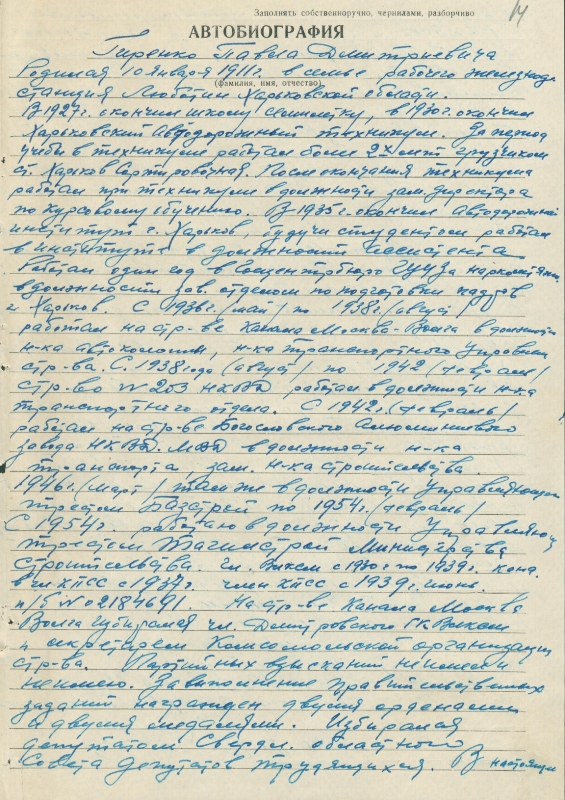 Заполнять собственноручно, чернилами, разборчиво
14
АВТОБИОГРАФИЯ
Гиренко Павла Дмитриевича
(фамилия, имя, отчество)
Родился 10 января 1911г. в семье рабочего железнод.
станция Люботин Харьковской области.
В 1927г. окончил школу семилетку, в 1930г. окончил
Харьковский Автодорожный техникум. За период
учебы в техникуме работал более 2х лет грузчиком
ст. Харьков Сортировочная. После окончания техникума
работал при техникуме в должности зам. директора
по курсовому обучению. В 1935г. окончил Автодорожный
институт г. Харьков, будучи студентом работал
в институте в должности ассистента
Работал один год в ГУУЗа
в должности зав. отделом по подготовки кадров
г. Харьков. С 1936г. /май/ по 1938г. /август/
работал на стр-ве Канала Москва-Волга в должности
н-ка автоколонны, н-ка транспортного Управления
стр-ва. С 1938 года /август/ по 1942 /февраль/
стр-во №203 НКВД работал в должности н-ка
транспортного отдела. С 1942г. /февраль/
работал на стр-ве Богословского Алюминиевого
завода НКВД. МВД в должности н-ка
транспорта, зам. н-ка строительства
1946г. /март/ там же в должности Управляющего
трестом Базстрой по 1954г. /февраль/
С 1954г. работаю в должности Управляющ.
трестом Тагилстрой Министерства
строительства. чл. Влксм с 1930г по 1939г. канд.
в чл. КПСС с 1937г. член КПСС с 1939г. июнь.
п/б №02184691. На стр-ве Канала Москва
Волга избирался чл. Дмитровского ГК Влксм
и секретарем Комсомольской организации
стр-ва. Партийных взысканий не имел и
не имею. За выполнение правительственных
заданий награжден двумя орденами
и двумя медалями. Избирался
депутатом Сверд. областного
Совета депутатов трудящихся. В настоящ.